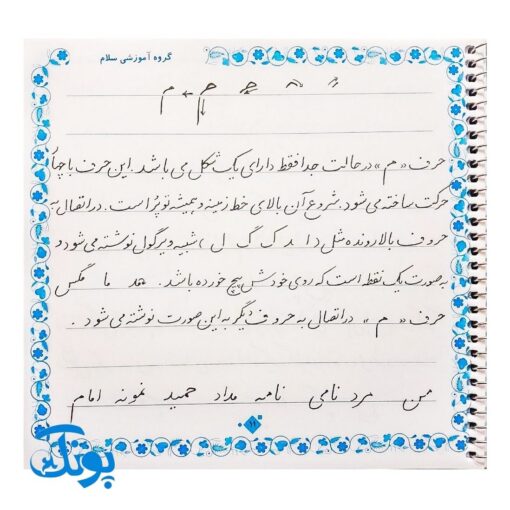 گروه آموزشی سلام
م ← م
حرف «م» در حالت جدا فقط دارای یک شکل می باشد. این حرف با چهار
حرکت ساخته می شود. شروع آن بالای خط زمینه و همیشه تو پُر است. در اتصال به
حروف بالارونده مثل د ا ک گ ل ، شبیه ویرگول نوشته می شود و
به صورت یک نقطه است که روی خودش پیچ خورده باشد. هد ما مگس
حرف «م» در اتصال به حروف دیگر به این صورت نوشته می شود.
من مرد نامی نامه مداد حمید نمونه امام
۱۱
پونک